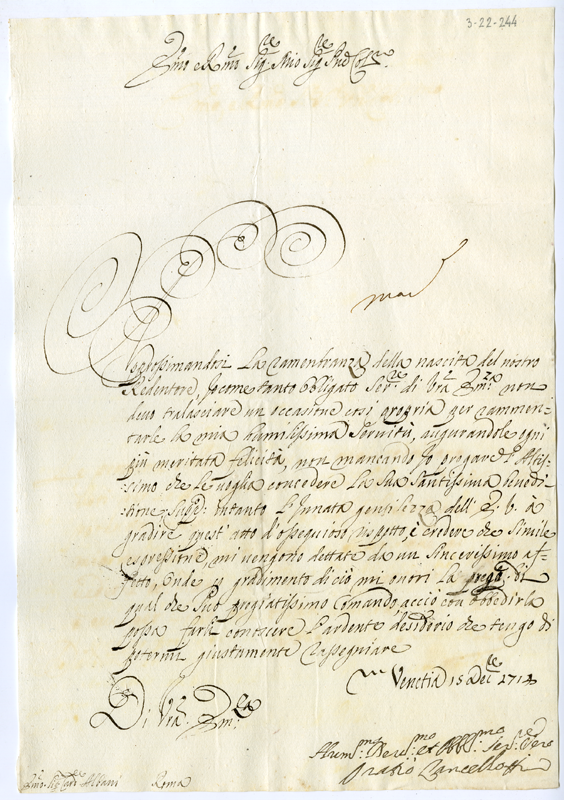 3-22-244
Emo e Rmo Sigre Mio Sigre Pad Colmo
Approssimandosi La ramentranza della nascita del nostro
Redentore, Io come tanto obbligato Serre di Vra Emza non
devo tralasciare un occasione cosi propria per rammen-
tarle la mia humilissima Servitù, augurandole ogni
più meritata felicità, non mancando Io pregare l'Altis-
:simo che Le voglia concedere La Sua Santissima Benedi-
tione. Supco: intanto L'Innata gentilezza dell' E. V. à
gradire quest' atto d'ossequioso rispetto, è credere che simile
espressione mi vengono dettate da un sincerissimo af-
fetto, Onde in gradimento di ciò mi onori La prego di
qual che Suo pregiatissimo Comando acciò con obbedirla
possa farli conoscere L'ardente desiderio che tengo di
potermi giustamente rassegnare
Venetia 15 Xbre 1712
Di Vra Emza
Humo Devmo et Obbmo Serre Vero
Oratio Lancellotti
Emo Sigr Card Albani Roma